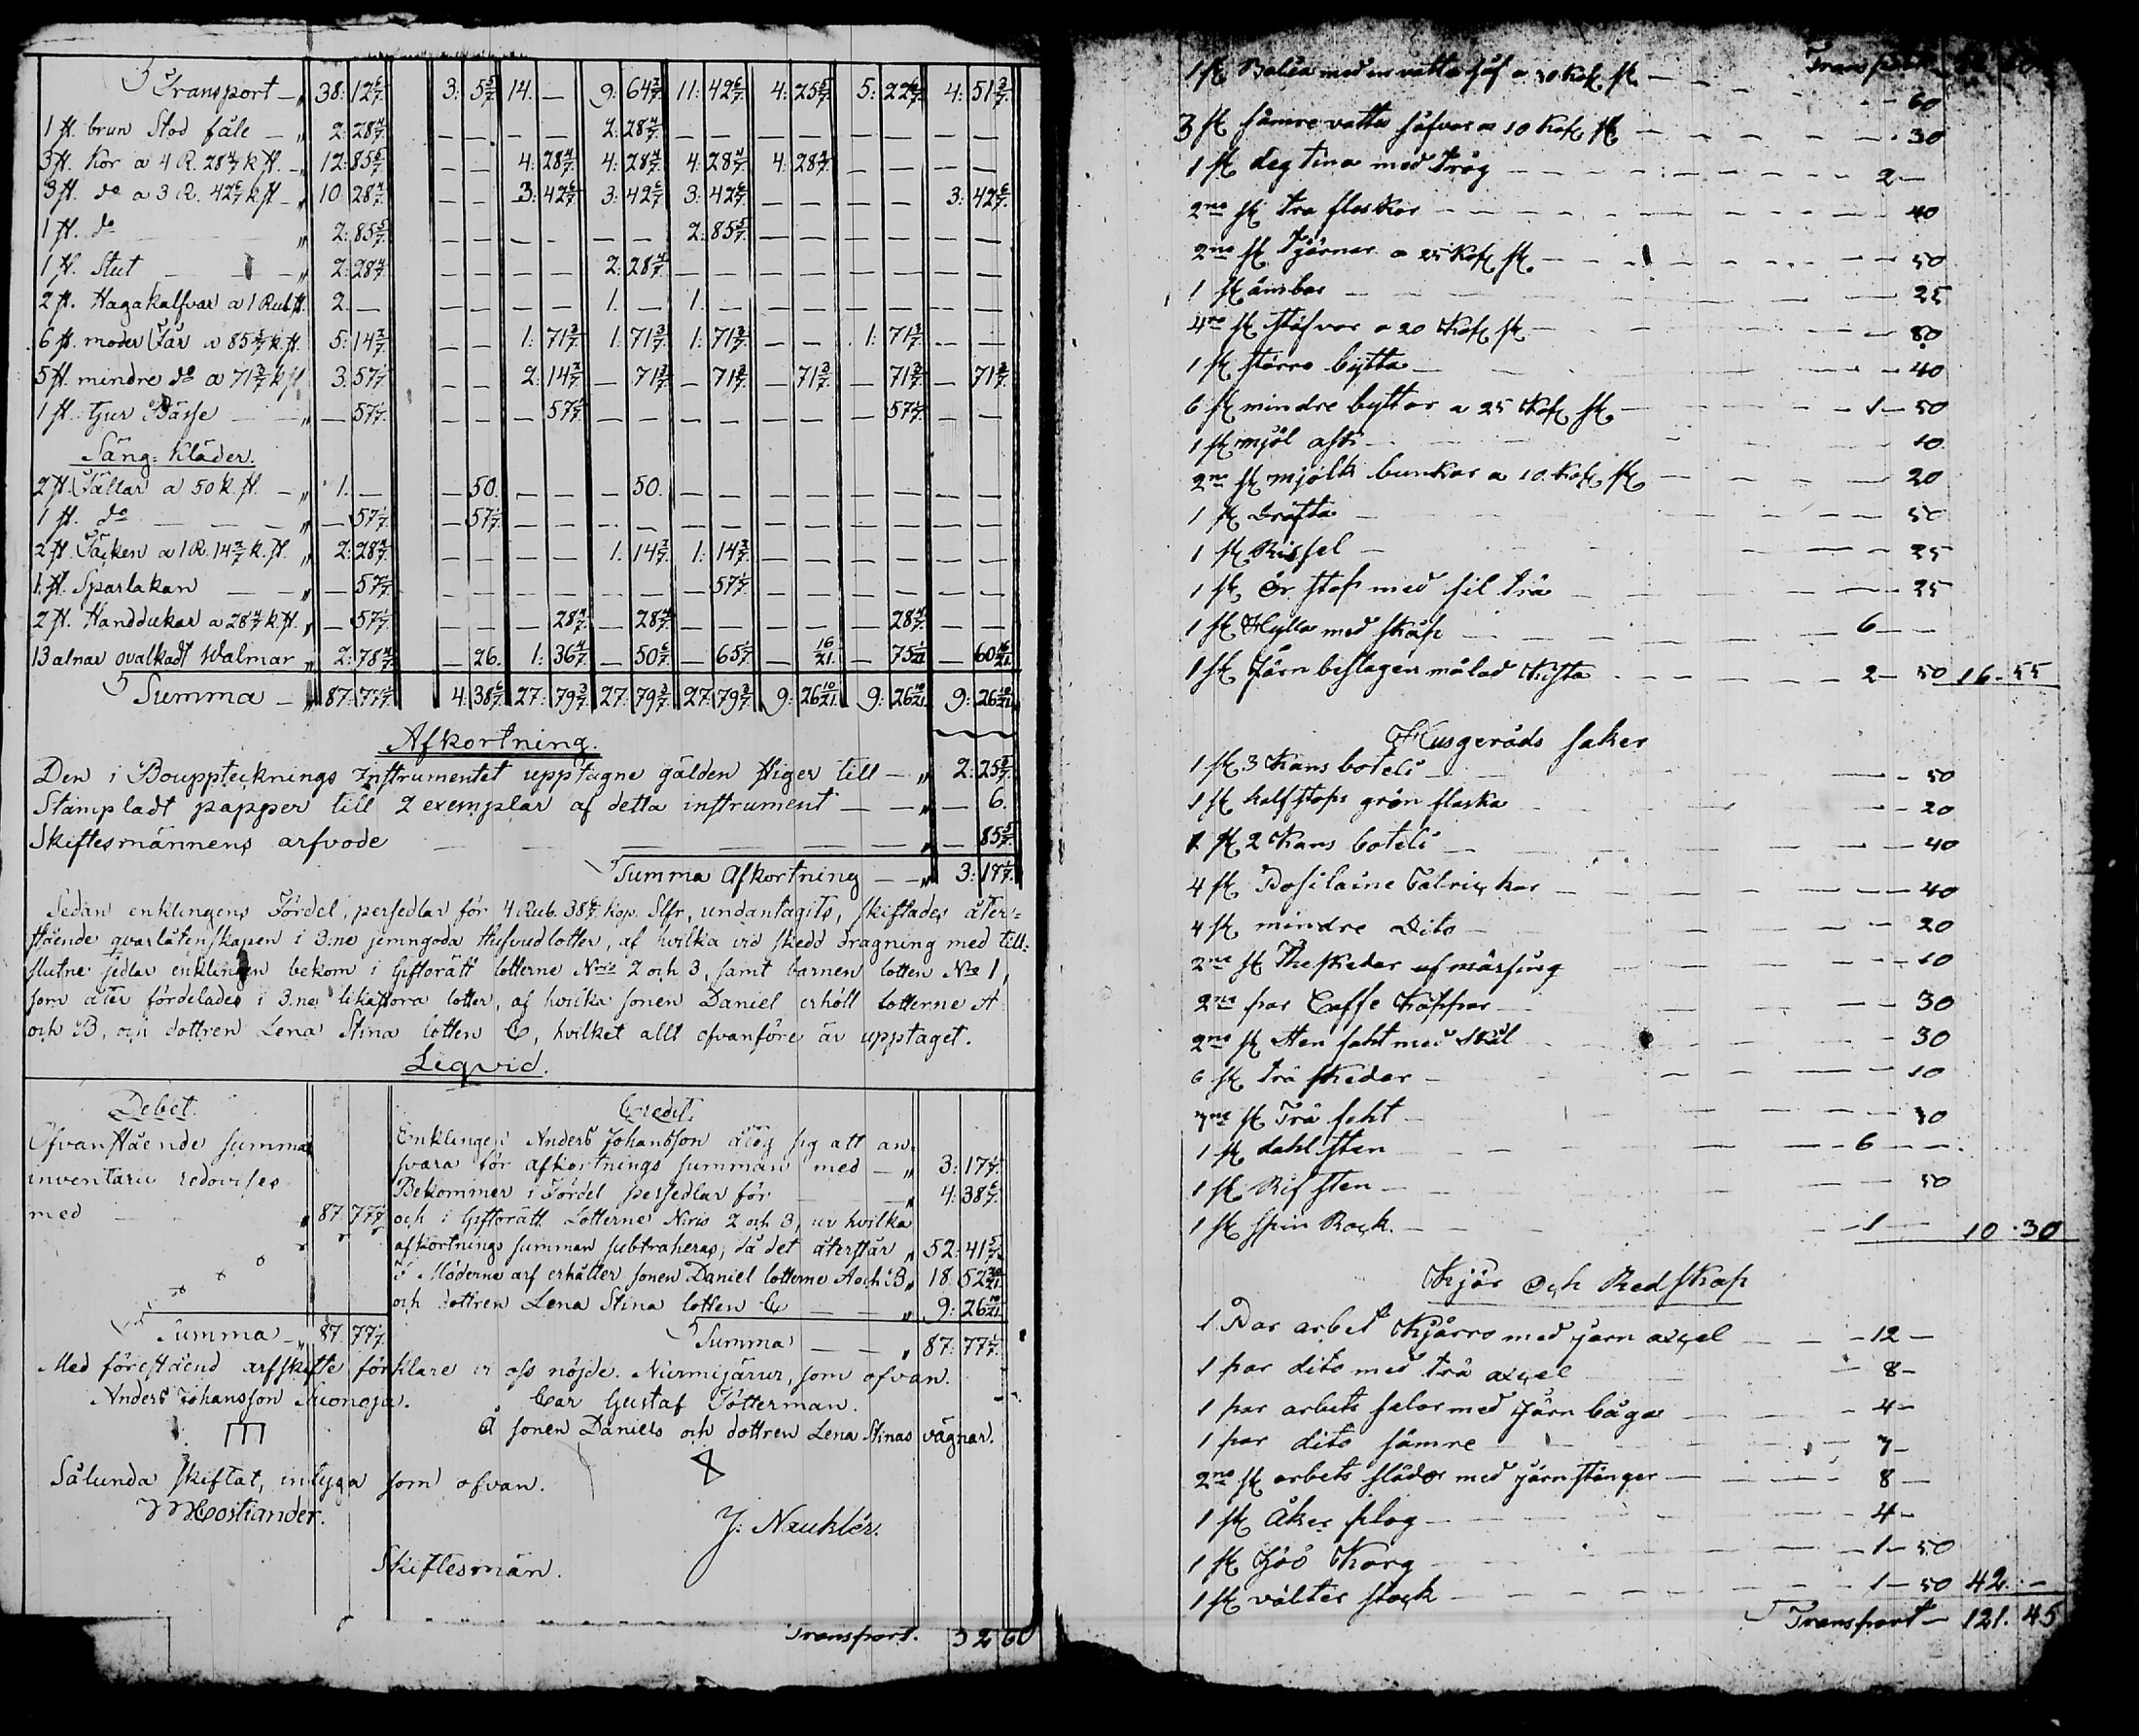 Transport — " 38: 12 6/7. 3: 5 5/7. 14. — 9: 64 2/7. 11: 42 6/7. 4: 25 5/7. 5: 22 6/7. 4: 51 3/7.
1 st. brun Stod fåle — " 2: 28 4/7. — — — — 2: 28 4/7. — — — — — — — —
3 st. Kor a 4 R. 28 4/7 k st. — " 12: 85 5/7. — — 4: 28 4/7. 4: 28 4/7. 4: 28 4/7. 4: 28 4/7. — — — —
3 st. do a 3 R. 42 6/7 k st — " 10: 28 4/7. — — 3: 42 6/7. 3: 42 6/7. 3: 42 6/7. — — — — 3: 42 6/7.
1 st. do — " 2: 85 5/7. — — — — — — 2: 85 5/7. — — — — — —
1 st. Stut — — " 2: 28 4/7. — — — — 2: 28 4/7. — — — — — — — —
2 st. Hagakalfvar a 1 Rub st. 2. — — — — — 1. — 1. — — — — — — —
6 st. moder Får a 85 5/7 k. st. 5: 14 2/7. — — 1: 71 3/7. 1: 71 3/7. 1: 71 3/7. — — 1: 71 3/7. — —
5 st. mindre do a 71 3/7 k st 3: 57 1/7. — — 2: 14 2/7. — 71 3/7. — 71 3/7. — 71 3/7. — 71 3/7. — 71 3/7.
1 st. tjur Bässe — " — 57 1/7. — — — 57 1/7. — — — — — — — 57 1/7. — —
Säng-Kläder.
2 st. Fällar a 50 k. st. — " 1. — — 50. — — — 50. — — — — — — — —
1 st. do — — — " — 57 1/7. — 57 1/7. — — — — — — — — — — — —
2 st. Täcken a 1 R. 14 2/7 k. st. " 2: 28 4/7. — — — — 1: 14 2/7. 1: 14 2/7. — — — — — —
1. st. Sparlakan — — " — 57 1/7. — — — — — — — 57 1/7. — — — — — —
2 st. Handdukar a 28 4/7 k. st. " — 57 1/7. — — — 28 4/7. — 28 4/7. — — — — — 28 4/7. — —
13 alnar ovalkadt Walmar " 2: 78 4/7. — 26. 1: 36 4/7. — 50 6/7. — 65 5/7. — 16/21. — 75 /21. — 60 16/21.
Summa — " 87: 77 1/7. 4: 38 6/7. 27: 79 3/7. 27: 79 3/7. 27: 79 3/7. 9: 26 10/21. 9: 26 10/21. 9: 26 10/21.
Afkortning.
Den i Bouppteknings Instrumentet upptagne gälden stiger till — " 2: 25 2/7.
Stämpladt papper till 2 exemplar af detta instrument — — " — 6.
Skiftesmännens arfvode — — — — — — " — 85 5/7.
Summa Afkortning — — " 3: 17 1/7.
Sedan enklingens Fördel, persedlar för 4 Rub. 38 6/7. kop. Slfr, undantagits, skiftades åter-
stående qvarlåtenskapen i 3:ne jemngoda Hufvudlotter, af hvilka vid skedd dragning med till-
slutne sedlar enklingen bekom i Giftorätt lotterne Nris 2 och 3, samt barnen lotten No 1,
som åter fördelades i 3:ne likastora lotter, af hvilka sonen Daniel erhöll lotterne A
och B, och dottren Lena Stina lotten C, hvilket allt ofvanföre är upptaget.
Liqvid.
Debet.
Ofvanstående summa
inventarii redovises
med — " 87: 77 1/7
Summa — " 87. 77 1/7.
Credit.
Enklingen Anders Johansson åtog sig att an-
svara för afkortnings summan med — " 3: 17 1/7.
Bekommer i Fördel persedlar för — — " 4: 38 6/7.
och i Giftorätt Lotterne Nris 2 och 3, ur hvilka
afkortnings summan subtraheras, då det återstår " 52: 41 5/7.
I Möderne arf erhåller sonen Daniel lotterne A och B " 18. 52 20/21.
och dottren Lena Stina lotten C — — " 9: 26 10/21.
Summa — — " 87: 77 1/7.
Med förestående arfskifte förklare vi oss nöjde. Nurmijärvi, som ofvan.
Anders Johansson Car Gustaf Tötterman.
Å sonen Daniels och dottren Lena Stinas vägnar.
Sålunda skiftat, intyga som ofvan.
J: Nauklér.
Skiftesmän.
Transport. 52 60
Transport
1 st Balia med en vatten såf a 30 Kop st — — 60
3 st sämre vatten såfvar a 10 Kop st — — 30
1 st degtina med tråg — — 2 —
2ne st trä flaskor — — 40
2ne st Tjärnar a 25 Kop st — — 50
1 st ämbar — — 25
4ra st ståfvor a 20 Kop st — — 80
1 st större bytta — — 40
6 st mindre byttor a 25 Kop st — — 1 — 50
1 st mjöl ask — — 10
2ne st mjölk bunkar a 10 Kop st — — 20
1 st Dråfta — — 50
1 st Rissel — — 25
1 st ör. stop med sil trä — — 25
1 st Hylla med skåp — — 6 — —
1 st Järn beslagen målad Kista — — 2 — 50 16 - 55
Husgeråds saker
1 st 3 Kans boteli — — 50
1 st half stops grön flaska — — 20
1 st 2 Kans boteli — — 40
4 st Posilaine Talrickar — — 40
4 st mindre Dito — — 20
2ne st The skedar af mässing — — 10
2ne par Caffe Koppar — — 30
2ne st Sten faht med Skål — — 30
6 st trä skedar — — 10
st Trä faht — — 30
1 st dahl sten — — 6 — —
1 st Rif sten — — 50
1 st spin Rock. — — 1 — 10 - 30
Kjör och Redskap
1 Par arbet Kjärror med järn axcel — — 12 —
1 par dito med trä axcel — 8 —
1 par arbets selor med järn bågar — — 4 —
1 par dito sämre — — 7 —
2ne st arbets slädor med järn stänger — — 8 —
1 st Åker plog — — 4 —
1 st Höö Korg — — 1 — 50
1 st välter stock — — 1 — 50 42. —
Transport — 121. 45